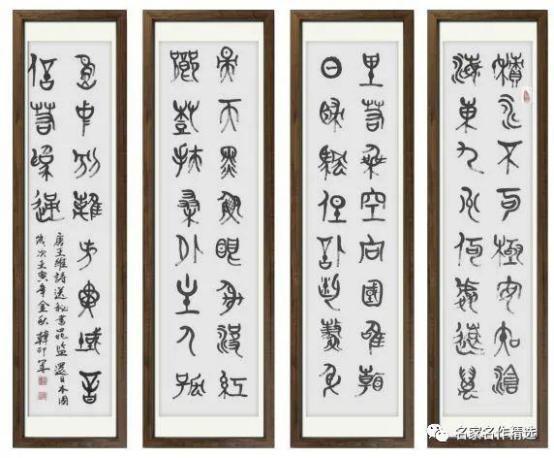 積水不可極安知滄
海東九州何處遠萬
里若乘空向國唯看
日歸帆但信風鰲身
映天黑魚眼射波紅
鄉樹扶桑外主人孤
島中別離方異域音
信若為通
唐王維詩送秘書晁監還日本國
歲次壬寅年金秋韓印军
名家名作精选